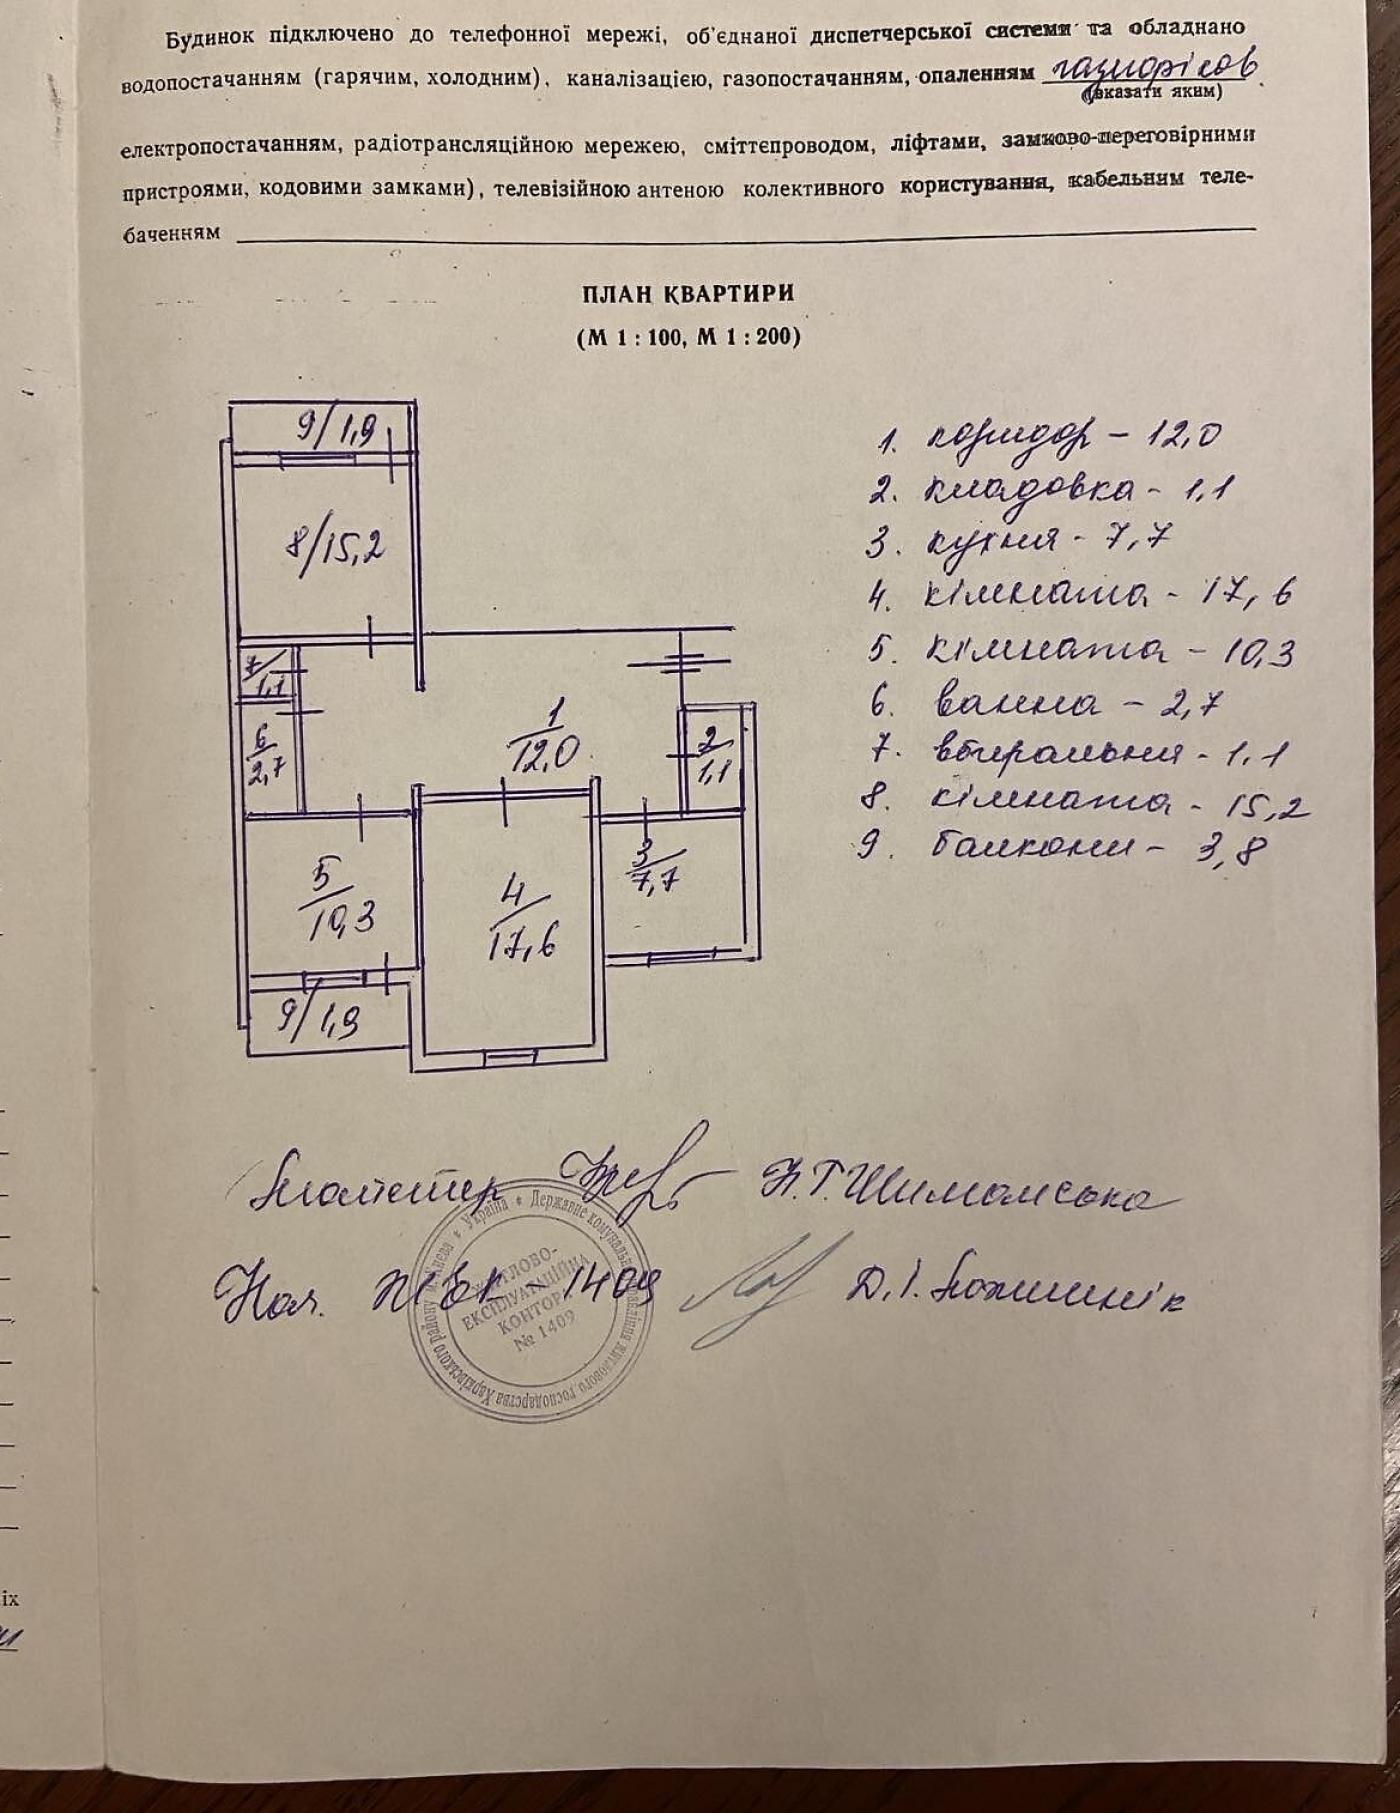 Будинок підключено до телефонної мережі, об'єднаної диспетчерської системи та обладнано
водопостачанням (гарячим, холодним), каналізацією, газопостачанням, опаленням
(вказати яким)
електропостачанням, радіотрансляційною мережею, сміттєпроводом, ліфтами, замково-переговірними
пристроями, кодовими замками), телевізійною антеною колективного користування, кабельним теле-
баченням
ПЛАН КВАРТИРИ
(М 1 : 100, М 1 : 200)
9/1,9
8/15,2
7/1,1
6/2,7
1/12,0
2/1,1
5/10,3
4/17,6
3/7,7
9/1,9
1. коридор - 12,0
2. кладовка - 1,1
3. кухня - 7,7
4. кімната - 17,6
5. кімната - 10,3
6. ванна - 2,7
7. вбиральня - 1,1
8. кімната - 15,2
9. балкони - 3,8
Н.Г. Шиманська
Нач. ЖЕК - 1409 Д.І.
Україна * Державне комунальне
житлового господарства Харківського району м. Києва
ЖИТЛОВО-
ЕКСПЛУАТАЦІЙНА
КОНТОРА
№ 1409
іх